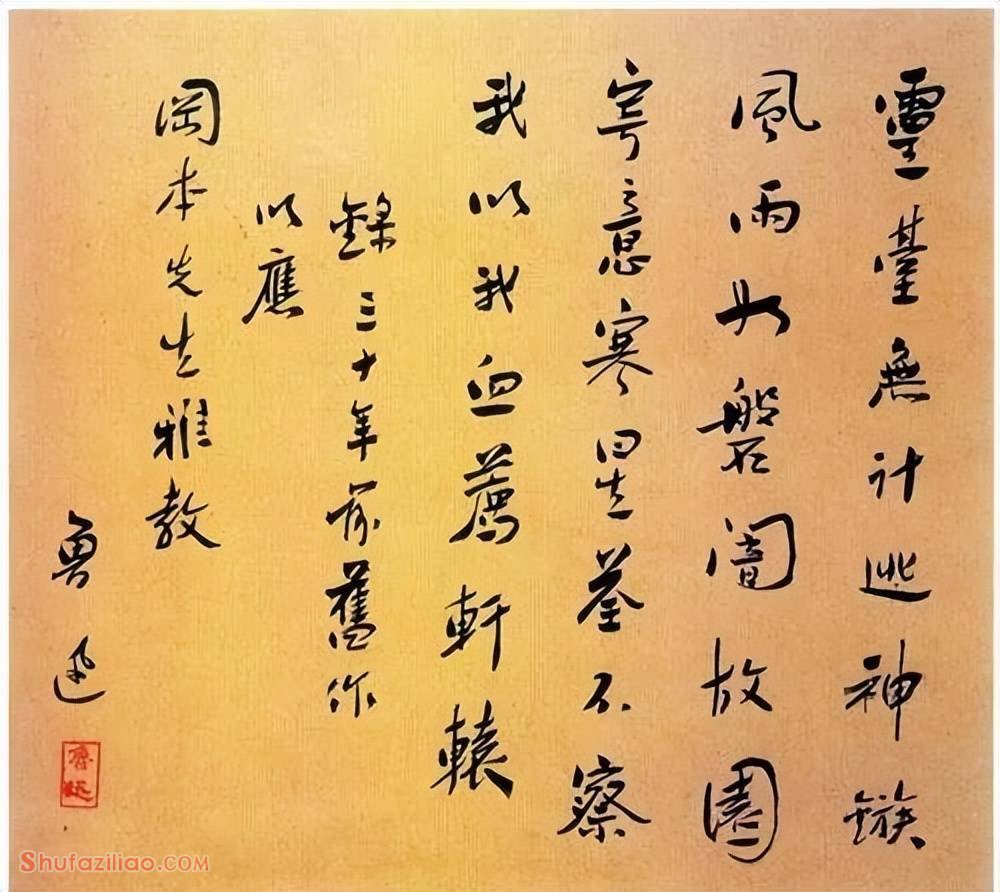 靈臺無計逃神鏃
風雨如磐闇故園
寄意寒星荃不察
我以我血薦軒轅
錄三十年前舊作
以應
岡本先生雅教
魯迅
魯迅
Shufaziliao.com